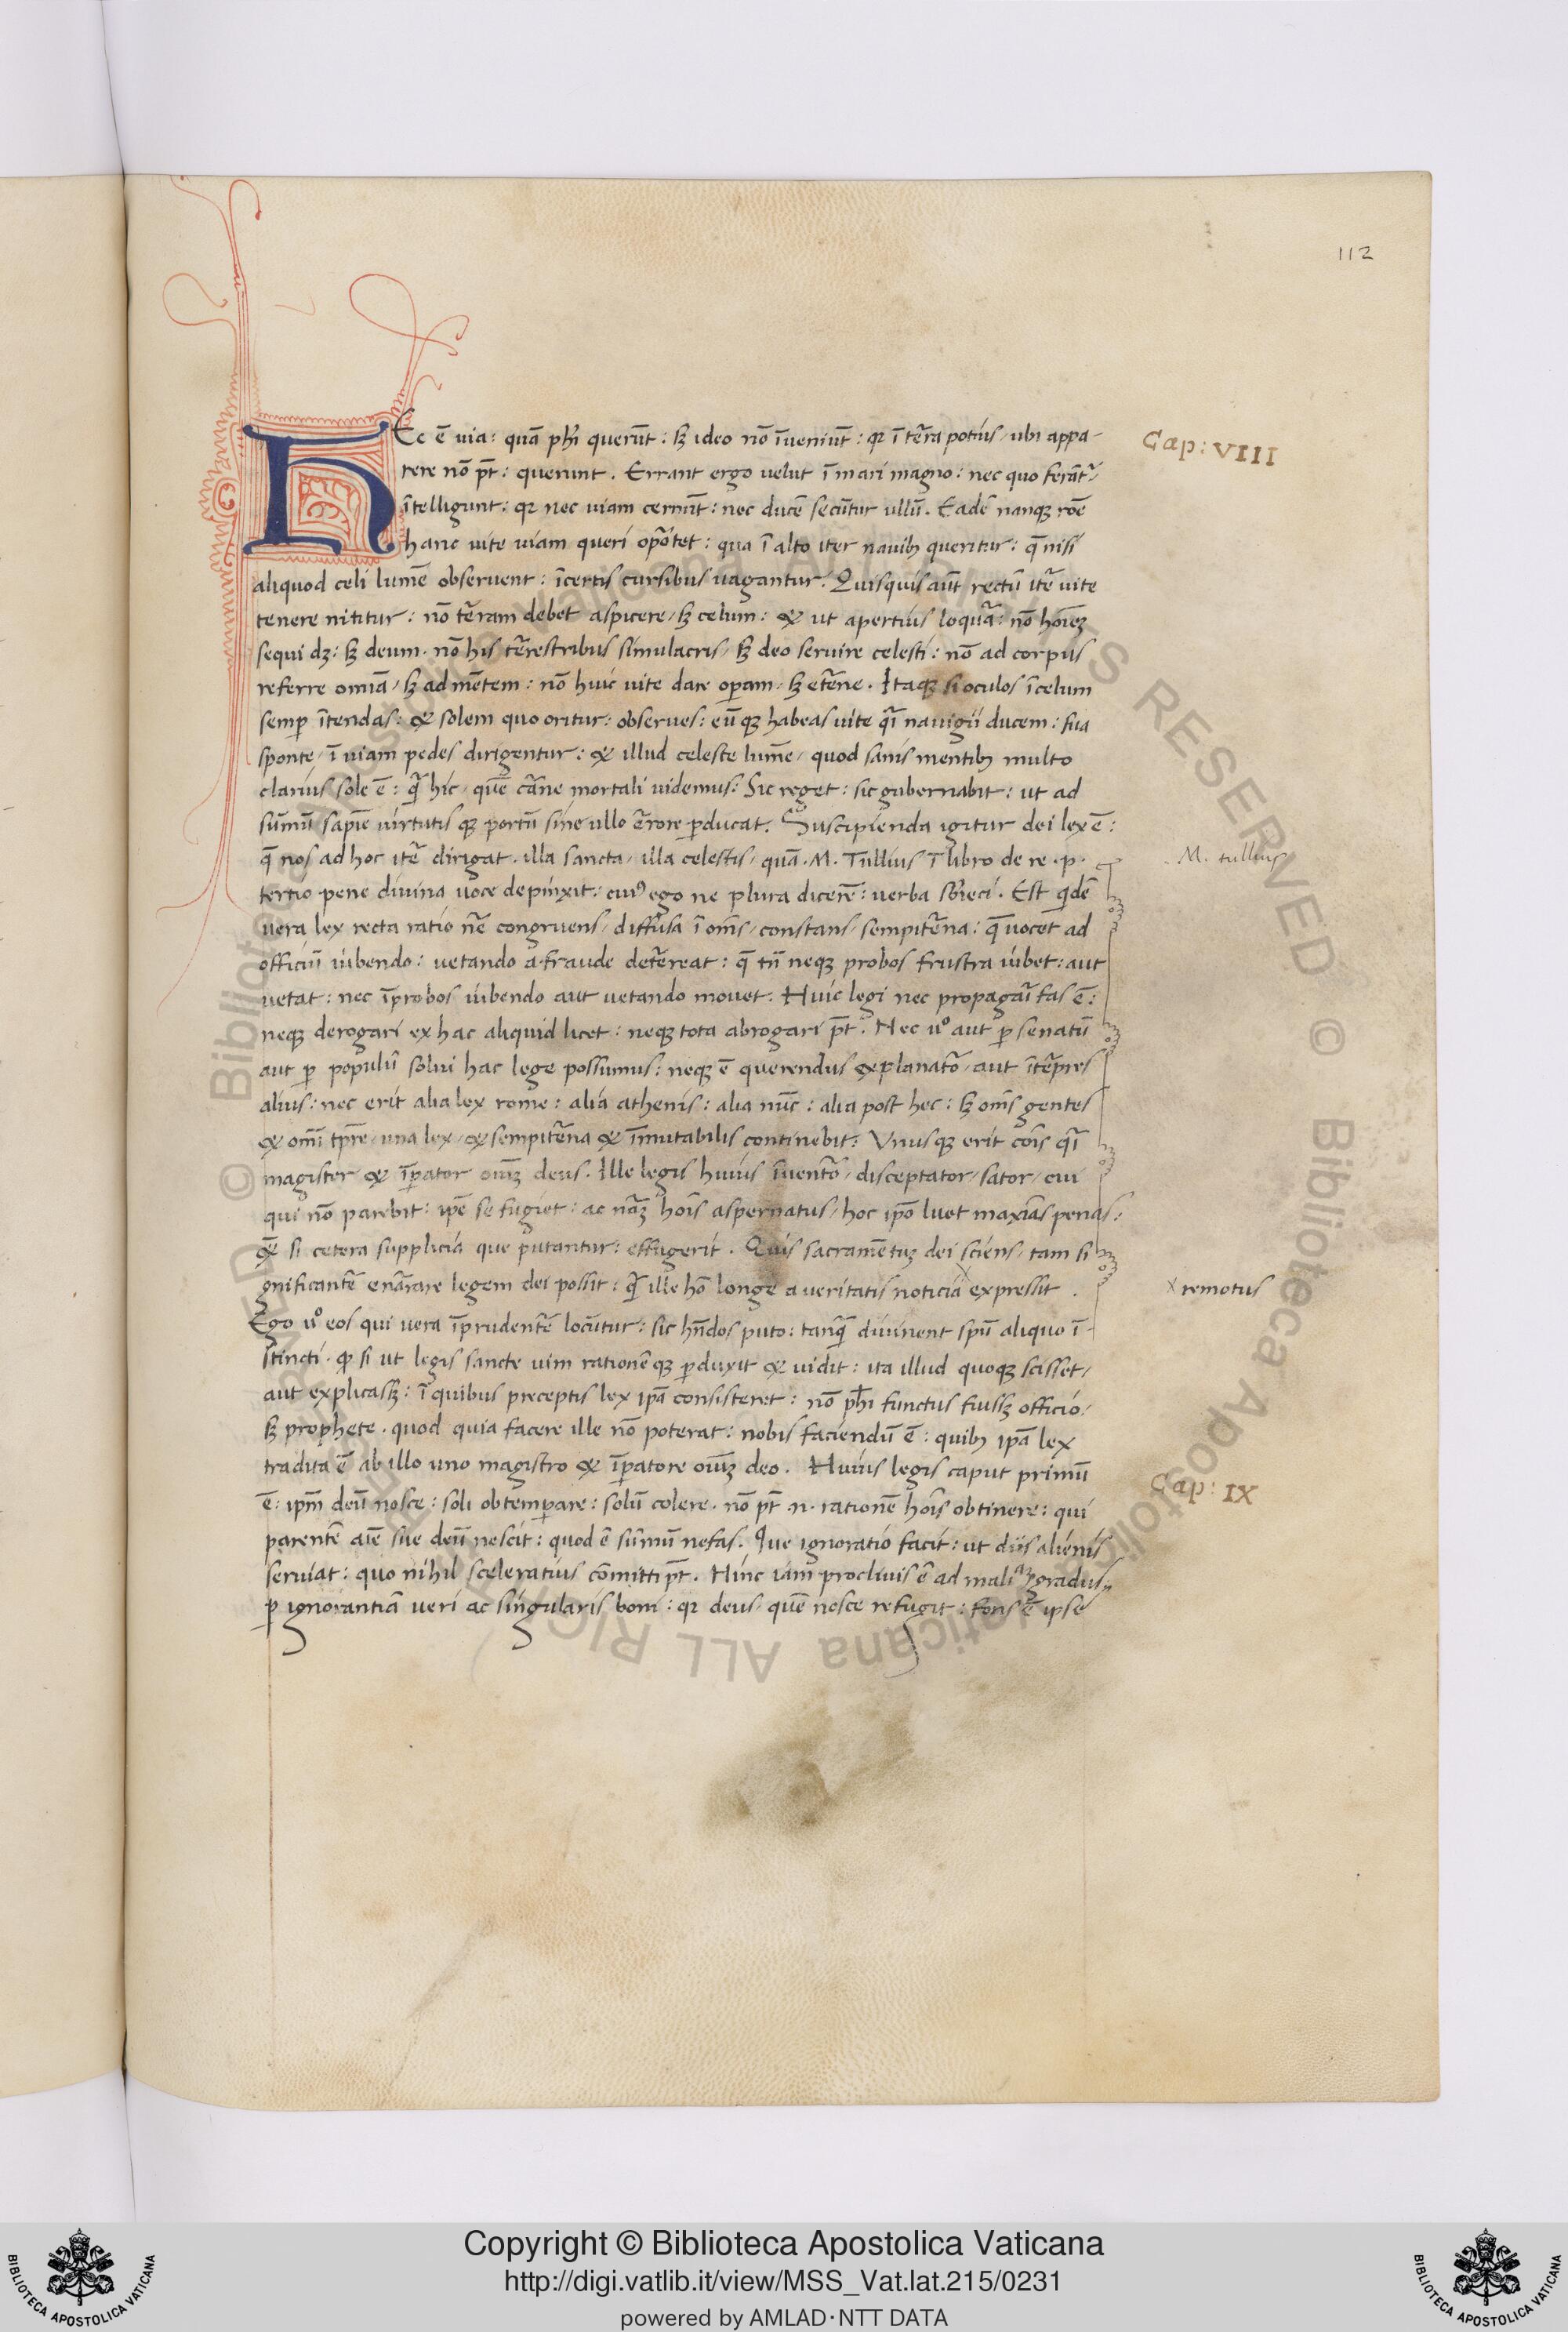 112
HEc ē via: quā phī querūt: sꝫ ideo nō īveniūt: qꝛ ī tēra potius/ ubi appa-
rere nō pt̄: querunt. Errant ergo velut ī mari magno: nec quo ferāt᷑/
ītelligunt: qꝛ nec viam cernūt: nec ducē secūtur ullū. Eadē nanqꝫ rōe
hanc vite viam queri oportet: qua ī alto iter navibꝫ queritur: q̄ nisi
aliquod celi lumē observent: īcertis cursibus vagantur. Quisquis aūt rectū itē vite
tenere nititur: nō tēram debet aspicere/ sꝫ celum: & ut apertius loquār: nō hoīeꝫ
sequi dꝫ: sꝫ deum. nō his tērestribus simulacris/ sꝫ deo servire celesti: nō ad corpus
referre omīa/ sꝫ ad mētem: nō huic vite dare operam/ sꝫ etēne. Itaqꝫ si oculos ī celum
semꝑ ītendas: & solem quo oritur: observes: eūqꝫ habeas vite q̄i navigii ducem: sua
sponte/ ī viam pedes dirigentur: & illud celeste lumē/ quod sanis mentibꝫ multo
clarius sole ē: q̄ hic/ quē cārne mortali videmus: Sic reget: sic gubernabit: ut ad
sūmū sapīe virtutisqꝫ portū sine ullo ērore ꝑducat. Suscipienda igitur dei lex ē:
q̄ nos ad hoc itē dirigat. illa sancta/ illa celestis/ quā .M. Tullius ī libro de re .p.
tertio pene divina voce depinxit: cuiꝰ ego ne plura dicerē: verba sbieci. Est qdē
vera lex recta ratio nē congruens/ diffusa ī om̄s/ constans/ sempitēna: q̄ vocet ad
officiū iubendo: vetando a fraude detēreat: q̄ tn̄ neqꝫ probos frustra iubet: aut
vetat: nec īprobos iubendo aut vetando movet. Huic legi nec propagari fas ē:
neqꝫ derogari ex hac aliquid licet: neqꝫ tota abrogari pt̄. Nec vº aut ꝑ senatū
aut ꝑ populū solvi hac lege possumus: neqꝫ ē querendus explanatō/ aut ītēpres
alius: nec erit alia lex rome: alia athenis: alia nūc: alia post hec: sꝫ om̄s gentes
& om̄i tpr̄e/ una lex/ & sempitēna & īmutabilis continebit: Unusqꝫ erit cōis q̄i
magister & īperator oīuꝫ deus. Ille legis huius īventō/ disceptator/ sator/ cui
qui nō parebit: ipē se fugiet: ac nāꝫ hoīs aspernatus/ hoc ipō luet maxīas penas:
& si cetera supplicia que putantur: effugerit. Quis sacramētuꝫ dei sciens/ tam si
gnificantē enārrare legem dei possit: q̄ ille hō longe a veritatis noticia expressit.
Ego vº eos qui vera īprudentē locūtur: sic hn̄dos puto: tanq̄ divinent spū aliquo ī-
stincti. qꝙ si ut legis sancte vim rationēqꝫ ꝑduxit & vidit: ita illud quoqꝫ scisset/
aut explicassꝫ: ī quibus preceptis lex ipā consisteret: nō phī functus fuissꝫ officio/
sꝫ prophete. quod quia facere ille nō poterat: nobis faciendū ē: quibꝫ ipā lex
tradita ē ab illo uno magistro & īperatore oīuꝫ deo. Huius legis caput primū
ē: ipm̄ deū nosce: soli obtemꝑare: solū colere. nō pt̄ .n. rationē hoīs obtinere: qui
parentē aīe sue deū nescit: quod ē sūmū nefas. Que ignoratio facit: ut diis alienis
serviat: quo nihil sceleratius cōmitti pt̄. Hinc iam proclivis ē ad malitiaꝫ gradus
ꝑ ignorantiā veri ac singularis boni: qꝛ deus/ quē nosce refugit: fons ē ipse
Cap: VIII
M. tullius
x remotus
Cap: IX
Copyright © Biblioteca Apostolica Vaticana
http://digi.vatlib.it/view/MSS_Vat.lat.215/0231
powered by AMLAD·NTT DATA
BIBLIOTECA APOSTOLICA VATICANA
BIBLIOTECA APOSTOLICA VATICANA